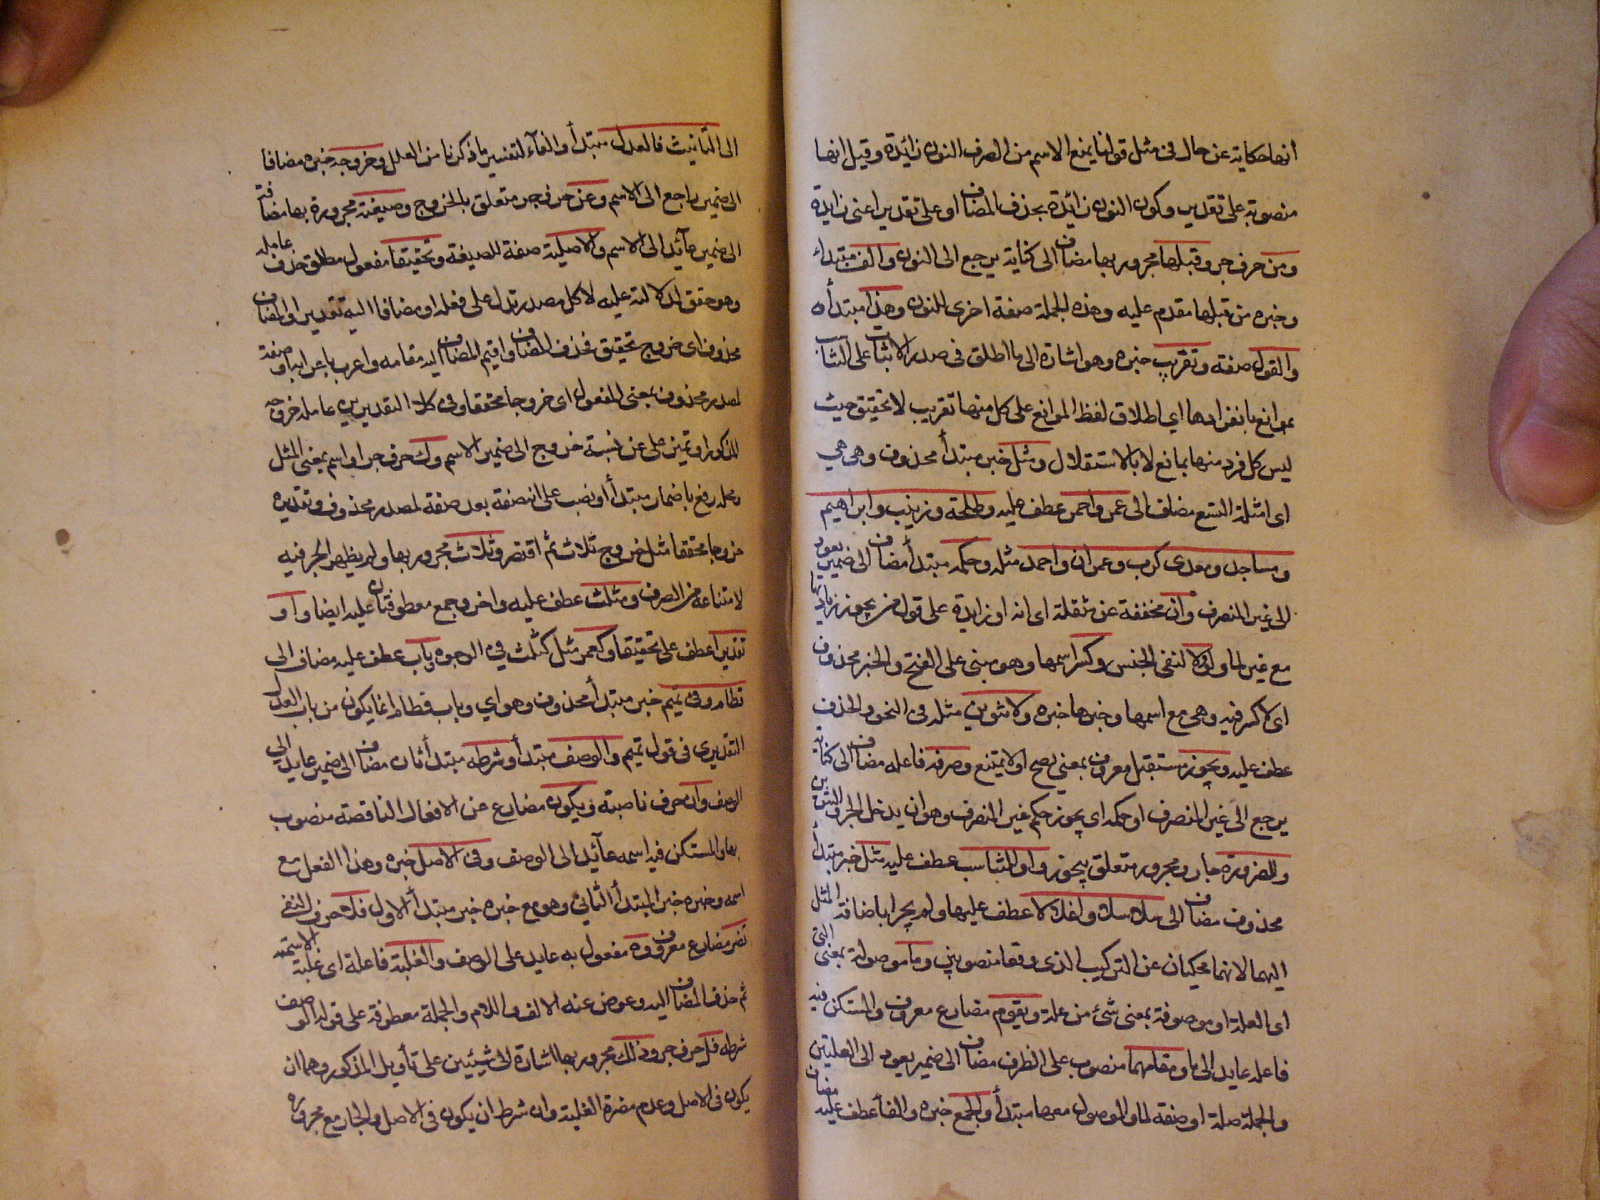 أنها حكاية عن حال في مثل قولنا يمنع الاسم من الصرف النون زائدة وقيل انها
منصوبة على تقدير وكون النون زائدة بحذف المضاف او على تقدير اعنى زايدة
ومن حرف جر وقبلها مجرور بها مضاف الى كناية يرجع الى النون والف مبتداء
وخبره من قبلها مقدم عليه وهذه الجملة صفة اخرى للنون وهذا مبتدأ
والقول صفة وتقريب خبره وهو اشارة الى ما اطلق في صدر الابيات على التناسب
موانع بانفرادها اي اطلاق لفظ الموانع على كل منها تقريب لا تحقيق حيث
ليس كل فرد منها بمانع لا بالاستقلال ومثل خبر مبتدأ محذوف وهي هي
اى امثلة التسع مضاف الى عمر واحمر عطف عليه وطلحة وزينب وابراهيم
ومساجد ومعدي كرب وعمران واحمد مثله وحكمه مبتدأ مضاف الى ضمير يعود
الى غير المنصرف وان مخففة عن مثقلة اى انه او زايدة على قول من يجوز زيادتها
مع غير لما ولا لنفى الجنس وكسر اسمها وهو مبنى على الفتح والخبر محذوف
اى لا كسر فيه وهى مع اسمها وخبرها خبره ولا تنوين مثله في النحو والحذف
عطف عليه ويجوز مستقبل معروف بمعنى يصح او لا يمتنع وصرفه فاعله مضاف الى كناية
يرجع الى غير المنصرف او حكمه اى يجوز حكم غير المنصرف وهو ان يدخل الجر والتنوين
وللضرورة جار ومجرور متعلق بيجوز واو للتناسب عطف عليه مثل خبر مبتدأ
محذوف مضاف الى سلاسلا واغلالا عطف عليها ولم يجرا باضافة المثل
اليهما لانهما محكيان عن التركيب الذى وقعا منصوبين وما موصولة بمعنى التى
اى العلة او موصوفة بمعنى شئ من علة ويقوم مضارع معروف والمستكن فيه
فاعله عايد الى ما ومقامهما منصوب على الظرف مضاف الى ضمير يعود الى العلتين
والجملة صلة او صفة لما والموصول معها مبتدأ والجمع خبره والفا عطف عليه مضاف
الى التأنيث فالعدل مبتدأ والفآء لتفسير ما ذكرنا من العلل وخروجه خبره مضافا
الى ضمير راجع الى الاسم وعن حرف جر متعلق بالخروج وصيغته مجرورة بها مضافة
الى ضمير عآئد الى الاسم والاصلية صفة للصيغة وتحقيقا مفعول مطلق حذف عامله
وهو حقق لدلالة عليه لا كل مصدر تدل على فعله او مضافا اليه تقدير او المضاف
محذوف اى خروج تحقيق فحذف المضاف واقيم المضاف اليه مقامه واعرب باعرابه او صفة
لمصدر محذوف بمعنى المفعول اى خروجا محققا وفي كلا التقديرين عامله خروجه
المذكور او تمييز على عن نسبة خروج الى ضمير الاسم وك حرف جر او اسم بمعنى المثل
محله رفع باضمار مبتدأ او نصب على انه صفة بعد صفة لمصدر محذوف وتقديره
خروجا محققا مثل خروج ثلاث ثم اقتصر وثلاث مجرور بها ولم يظهر الجر فيه
لامتناعه من الصرف ومثلث عطف عليه واخر وجمع معطوفتان عليه ايضا واو
تقديرا عطف على تحقيقا وكعمر مثل كثلث في الوجوه وباب عطف عليه مضاف الى
قطام وفى تميم خبر مبتدأ محذوف وهو اي وباب قطام انما يكون من باب العدل
التقديرى في قول تميم والوصف مبتدأ وشرطه مبتدأ ثان مضاف الى ضمير عايد الى
الوصف وان حرف ناصبة ويكون مضارع من الافعال الناقصة منصوب
بها والمستكن فيه اسمه عآئد الى الوصف وفى الاصل خبره وهذا الفعل مع
اسمه وخبره خبر المبتدأ الثاني وهو مع خبره خبر مبتدأ الاول فلا حرف النفى
تضر مضارع معروف وه مفعول به عايد على الوصف والغلبة فاعلة اى غلبة الاسمية
ثم حذف المضاف اليه وعوض عنه الالف واللام والجملة معطوفة على قوله الوصف
شرطه فل حرف جر وذلك مجرور بها اشارة الى شيئين على تأويل المذكور وهما ان
يكون فى الاصل وعدم مضرة الغلبة وان شرط ان يكون فى الاصل والجار مع مجروره